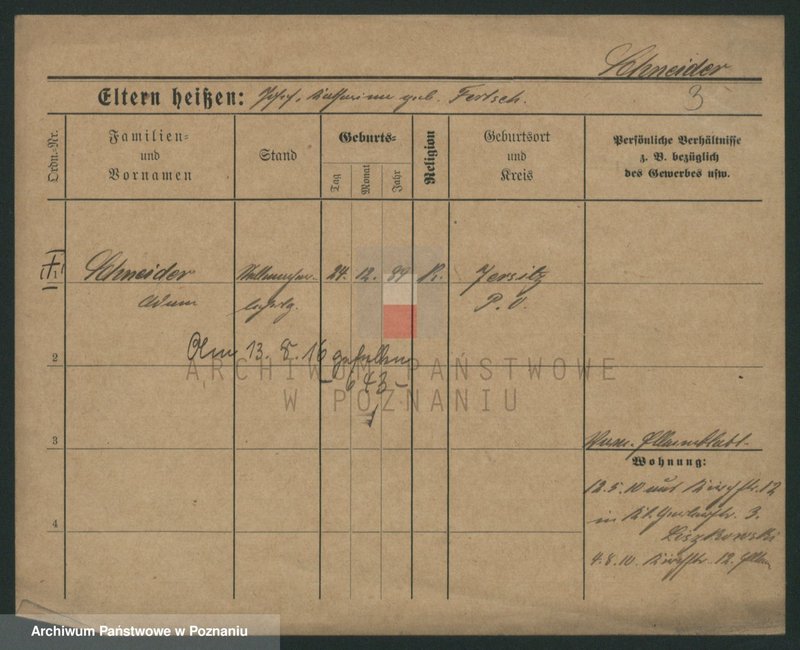 Schneider
3
Eltern heißen: Josef, Katharina geb. Fertsch.
Ordn.-Nr.
Familien=
und
Vornamen
Stand
Geburts=
Tag
Monat
Jahr
Religion
Geburtsort
und
Kreis
Persönliche Verhältnisse
z. B. bezüglich
des Gewerbes usw.
1
Schneider
Adam
24. 12. 89 K.
Jersitz
P. O.
Am 13. 8. 16 gefallen
- 643 -
2
3
4
Wohnung:
12.5.10 aus Kirchstr. 12
in 3.
Liszkowski
4.8.10. Kirchstr. 12.
ARCHIWUM PAŃSTWOWE
W POZNANIU
Archiwum Państwowe w Poznaniu